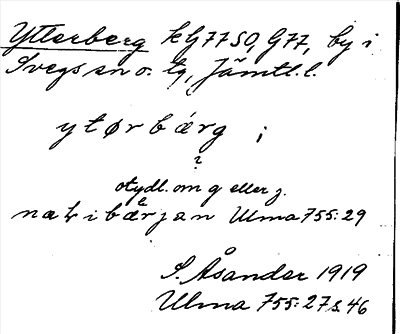 Ytterberg k G77 SO, G77, by i
Svegs sn o. tg, Jämtl. l.
ytørbǽrg i
?
otydl. om g eller j.
næt i bærjan Ulma 755:29
S. Åsander 1919
Ulma 755:27 s. 46